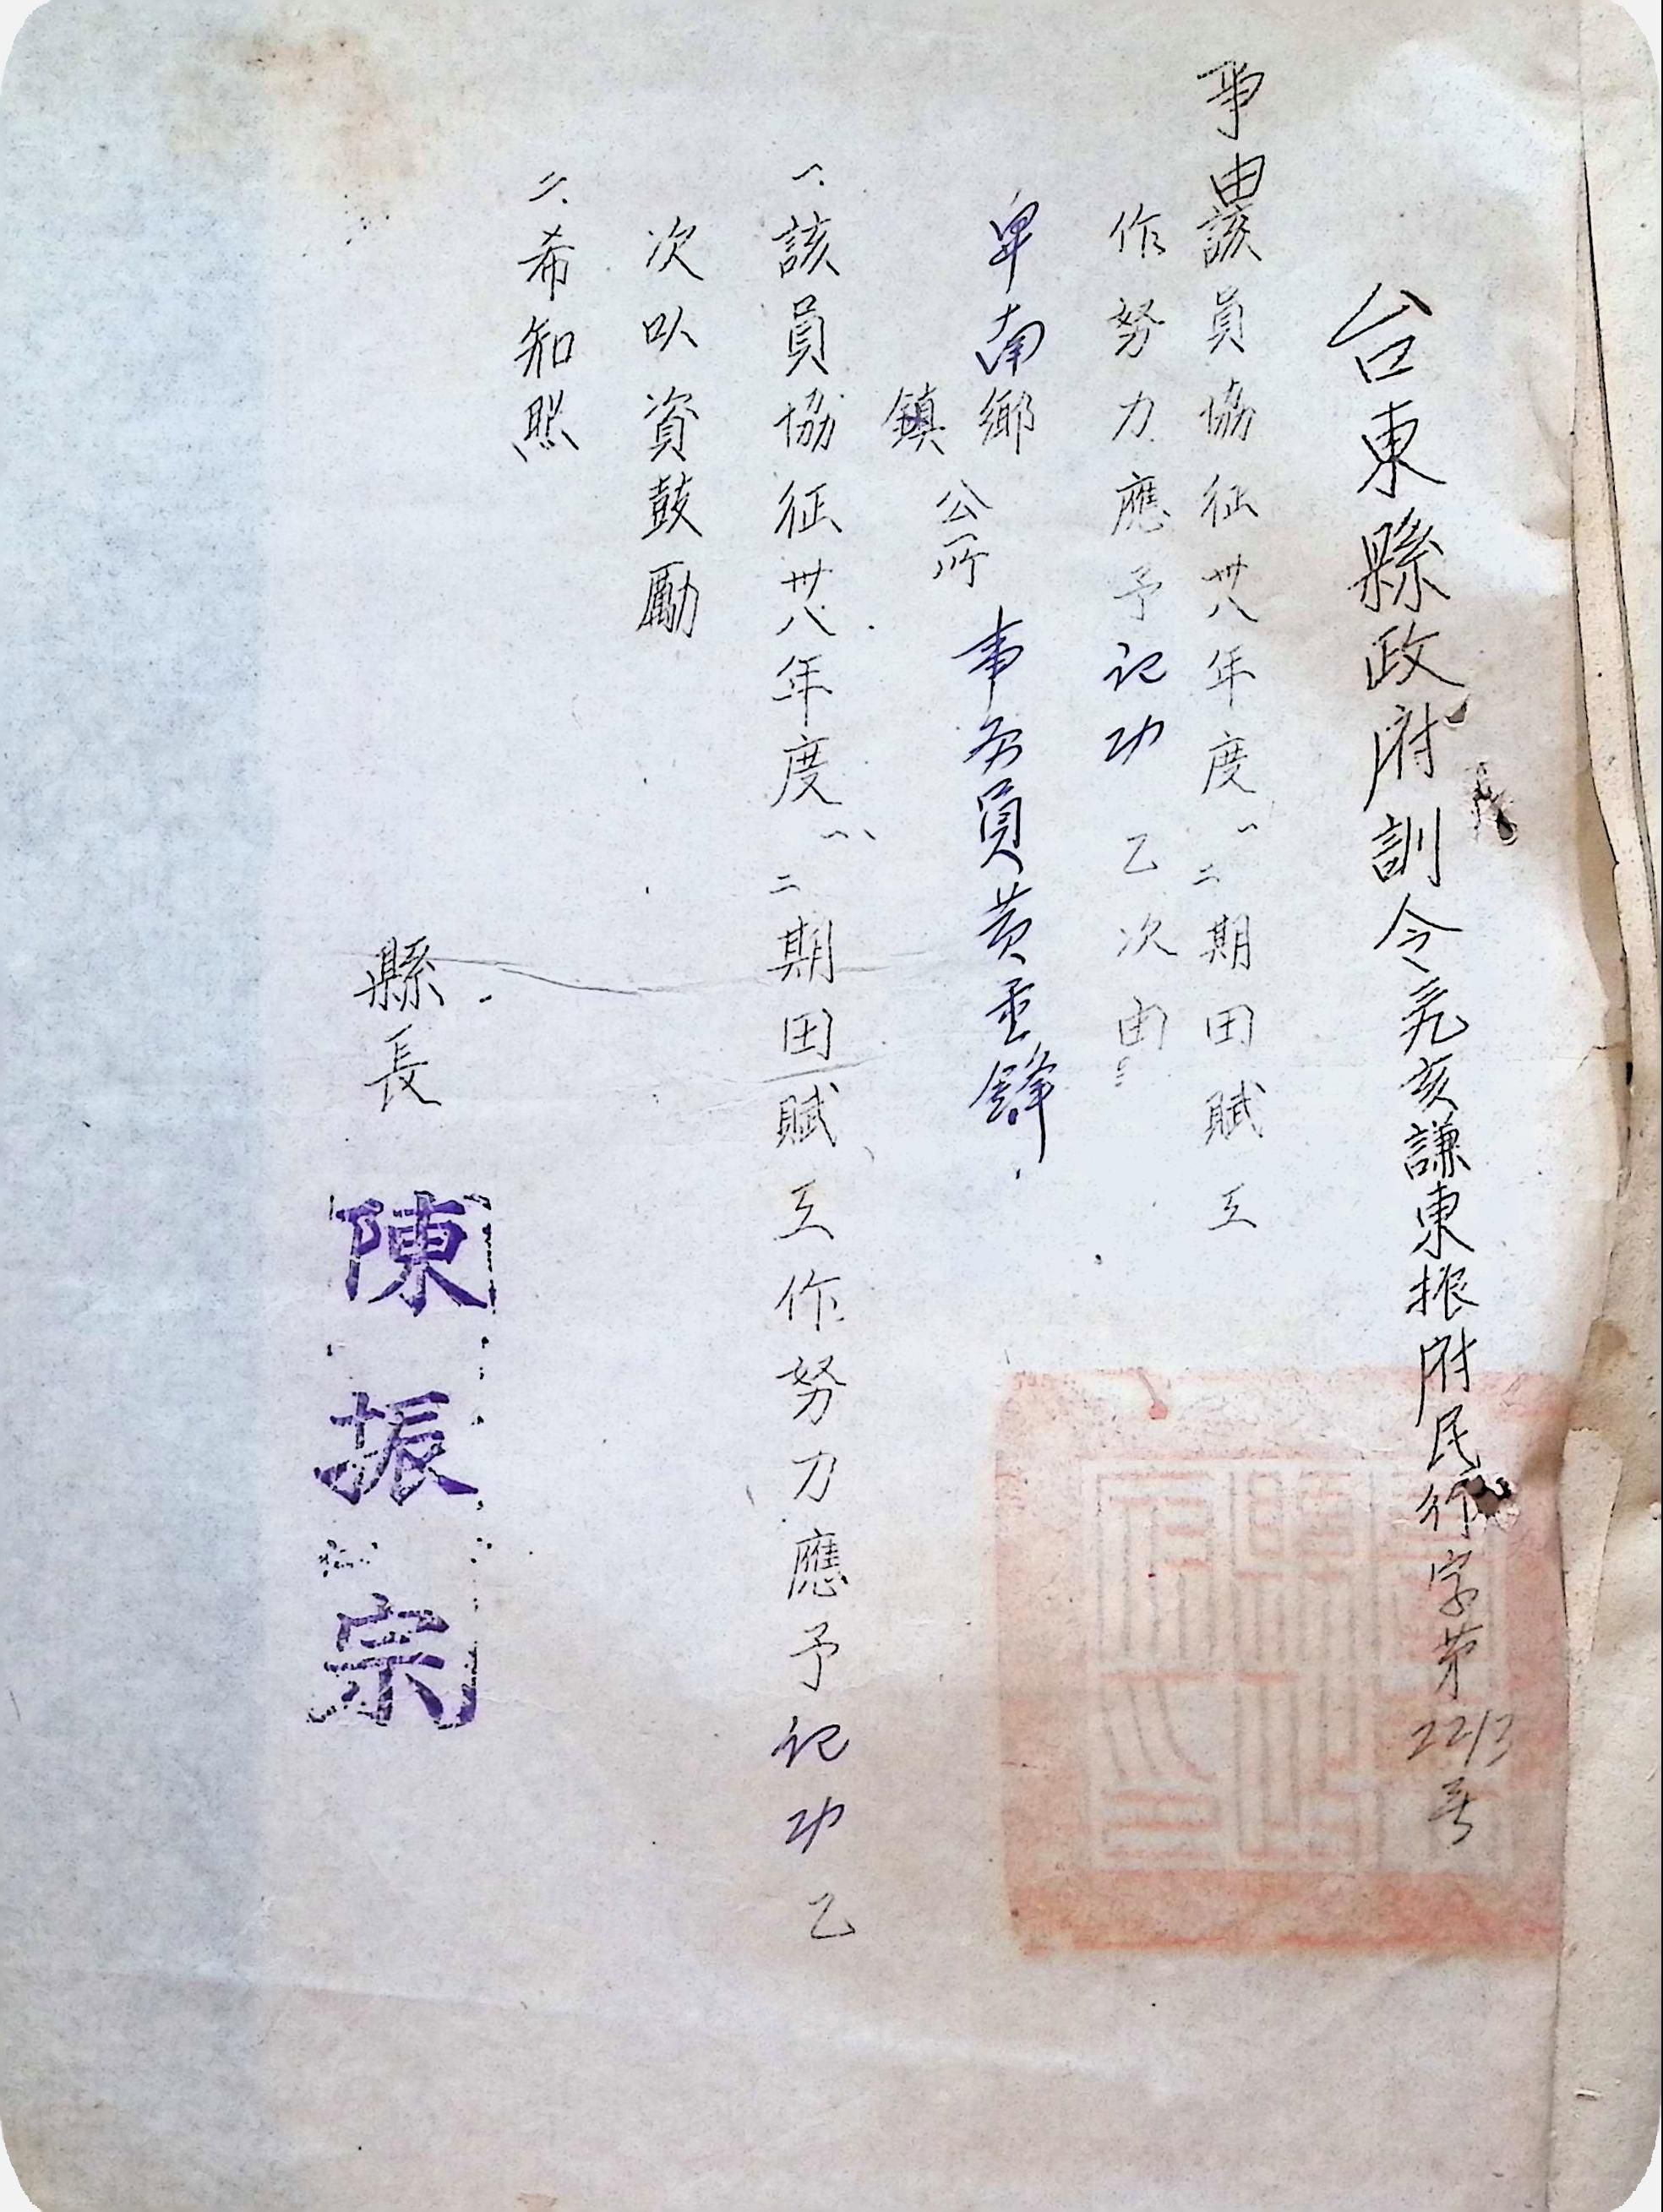 台東縣政府訓令 亥謙東振府民行字第2213号
事由 該員協征卅八年度一、二期田賦工
作努力應予記功乙次由
卑南鄉
鎮
公所
事务員黄重鋒
一、該員協征卅八年度一、二期田賦工作努力應予記功乙
次以資鼓勵
二、希知照
縣長 陳振宗